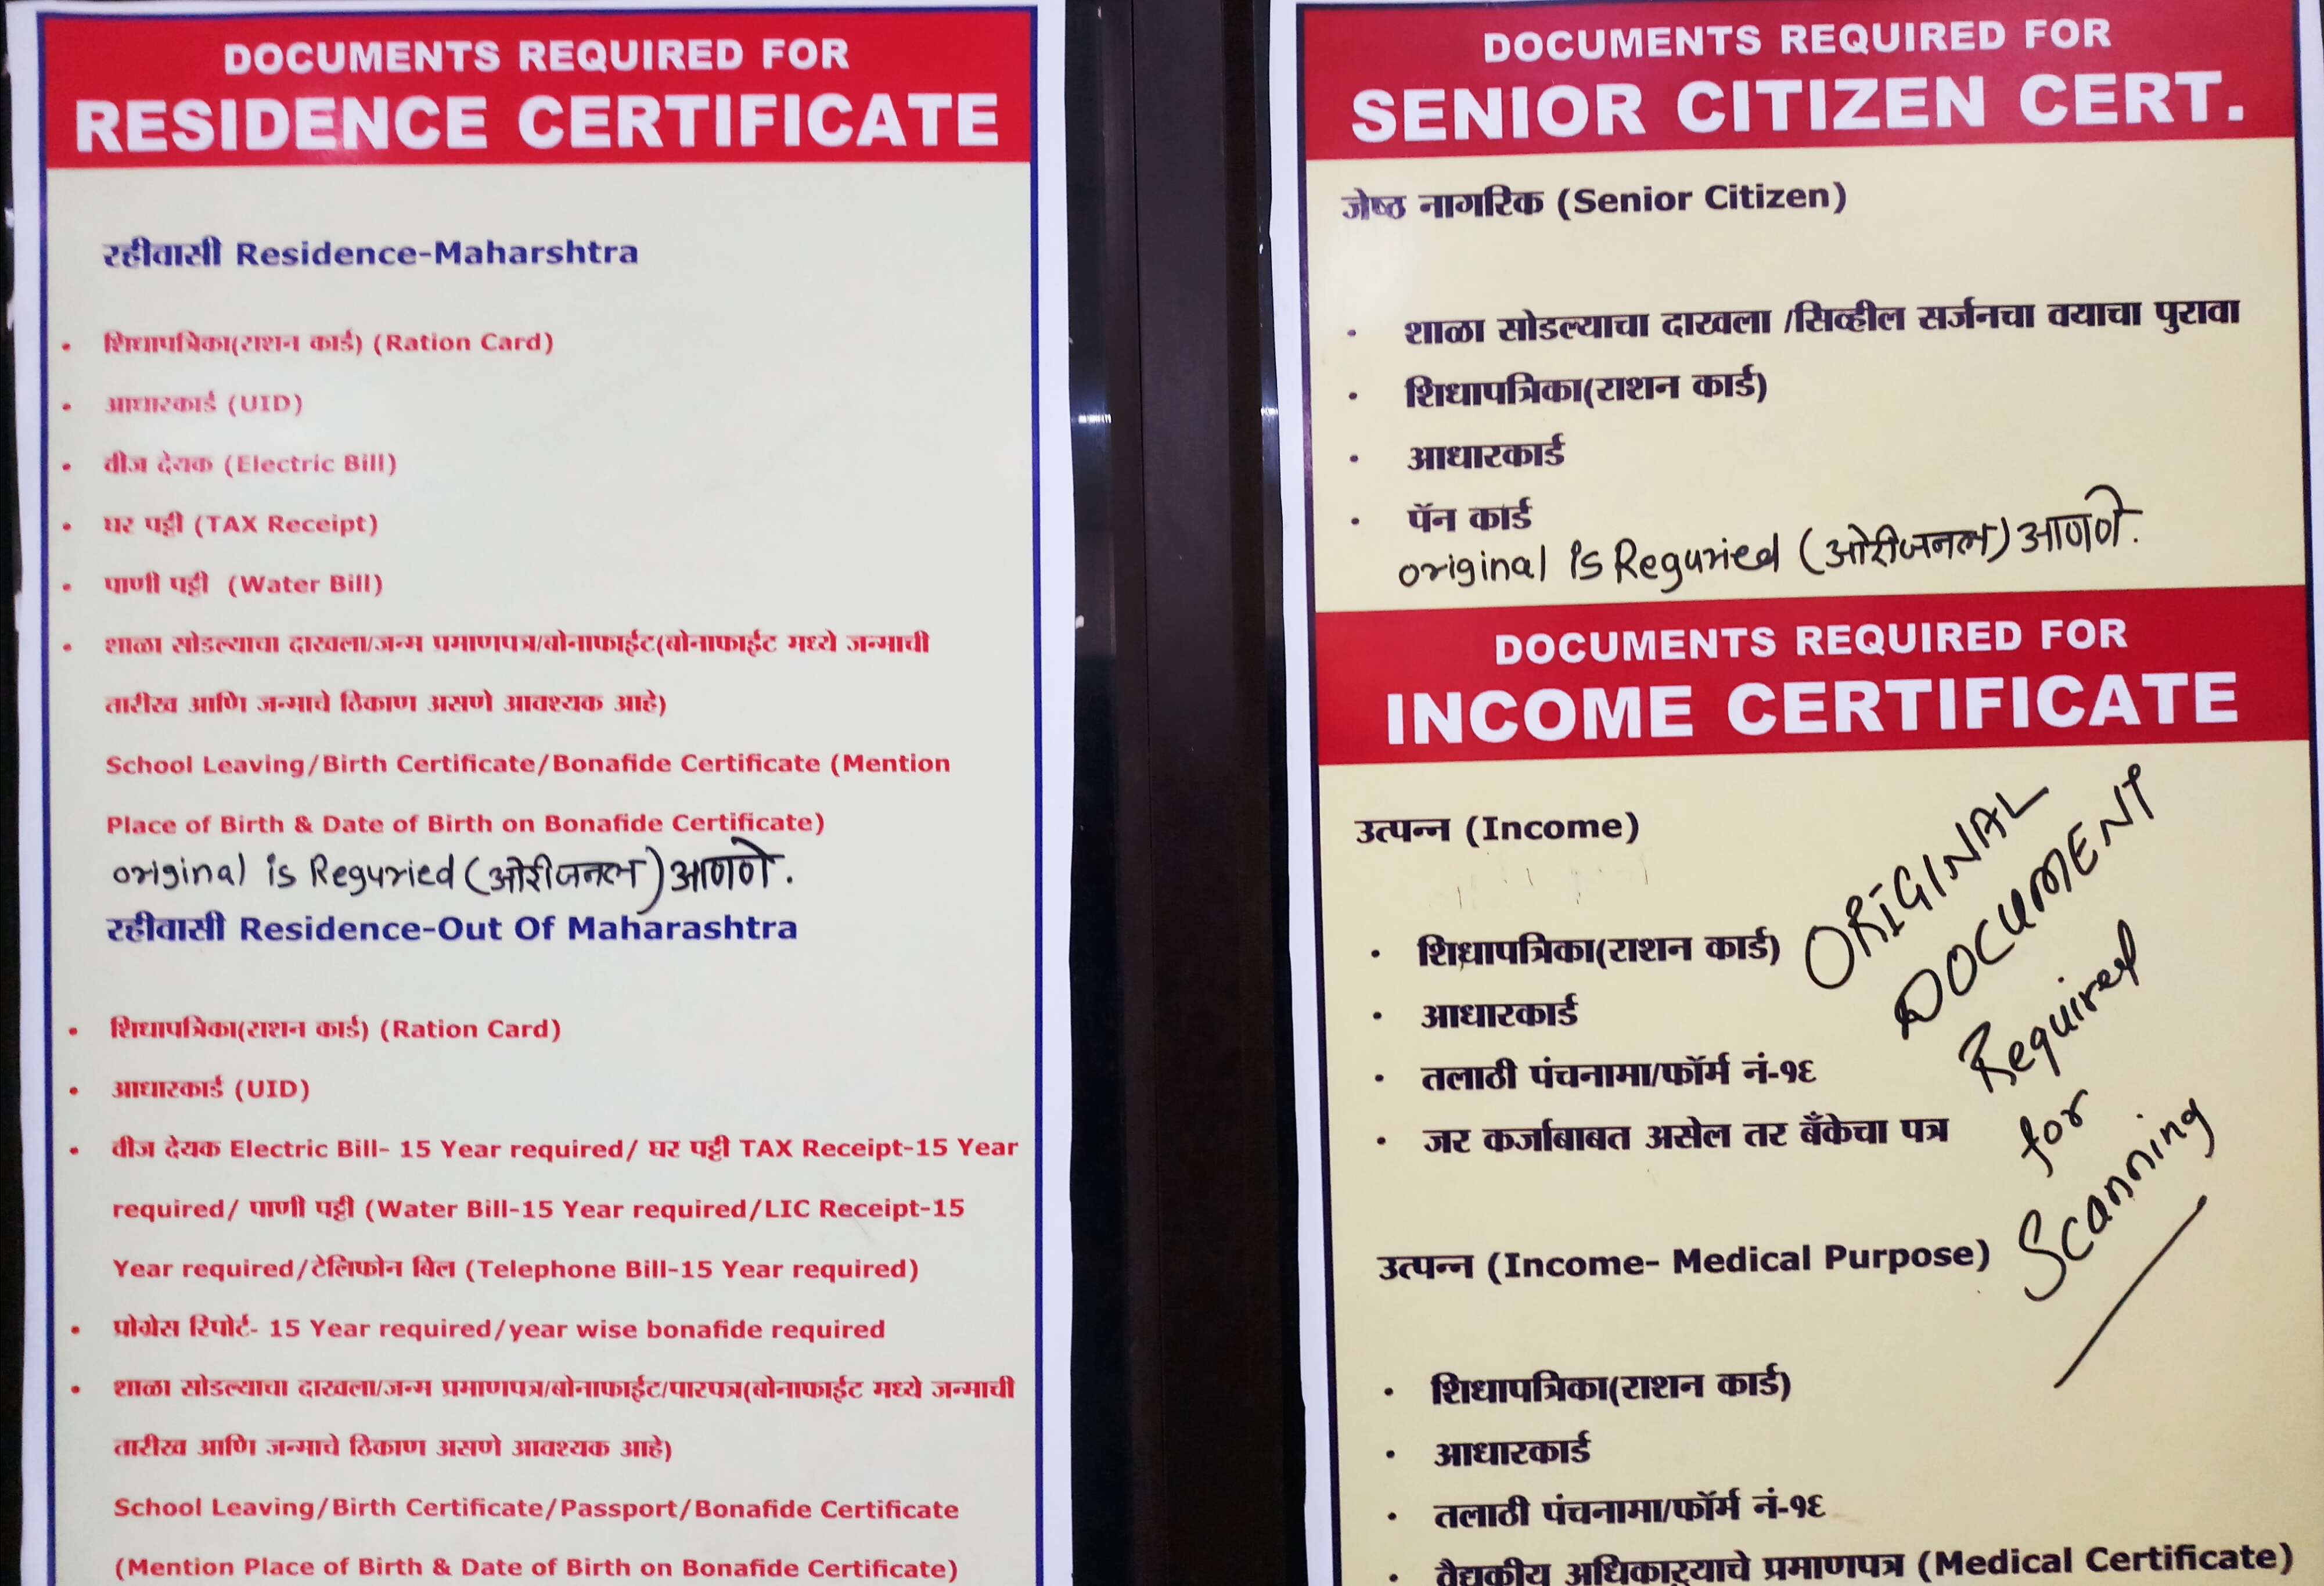 DOCUMENTS REQUIRED FOR
RESIDENCE CERTIFICATE
रहीवासी Residence-Maharshtra
• शिधापत्रिका(राशन कार्ड) (Ration Card)
• आधारकार्ड (UID)
• वीज देयक (Electric Bill)
• घर पट्टी (TAX Receipt)
• पाणी पट्टी (Water Bill)
• शाळा सोडल्याचा दाखला/जन्म प्रमाणपत्र/बोनाफाईट(बोनाफाईट मध्ये जन्माची
तारीख आणि जन्माचे ठिकाण असणे आवश्यक आहे)
School Leaving/Birth Certificate/Bonafide Certificate (Mention
Place of Birth & Date of Birth on Bonafide Certificate)
original is Reguried (ओरीजनल) आणणे.
रहीवासी Residence-Out Of Maharashtra
• शिधापत्रिका(राशन कार्ड) (Ration Card)
• आधारकार्ड (UID)
• वीज देयक Electric Bill- 15 Year required/ घर पट्टी TAX Receipt-15 Year
required/ पाणी पट्टी (Water Bill-15 Year required/LIC Receipt-15
Year required/टेलिफोन बिल (Telephone Bill-15 Year required)
• प्रोग्रेस रिपोर्ट- 15 Year required/year wise bonafide required
• शाळा सोडल्याचा दाखला/जन्म प्रमाणपत्र/बोनाफाईट/पारपत्र(बोनाफाईट मध्ये जन्माची
तारीख आणि जन्माचे ठिकाण असणे आवश्यक आहे)
School Leaving/Birth Certificate/Passport/Bonafide Certificate
(Mention Place of Birth & Date of Birth on Bonafide Certificate)
DOCUMENTS REQUIRED FOR
SENIOR CITIZEN CERT.
जेष्ठ नागरिक (Senior Citizen)
• शाळा सोडल्याचा दाखला /सिव्हील सर्जनचा वयाचा पुरावा
• शिधापत्रिका(राशन कार्ड)
• आधारकार्ड
• पॅन कार्ड
original is Reguried (ओरीजनल) आणणे.
DOCUMENTS REQUIRED FOR
INCOME CERTIFICATE
उत्पन्न (Income)
• शिधापत्रिका(राशन कार्ड)
• आधारकार्ड
• तलाठी पंचनामा/फॉर्म नं-१६
• जर कर्जाबाबत असेल तर बँकेचा पत्र
ORIGINAL
DOCUMENT
Required
for
Scanning
उत्पन्न (Income- Medical Purpose)
• शिधापत्रिका(राशन कार्ड)
• आधारकार्ड
• तलाठी पंचनामा/फॉर्म नं-१६
• वैद्यकीय अधिकाऱ्याचे प्रमाणपत्र (Medical Certificate)